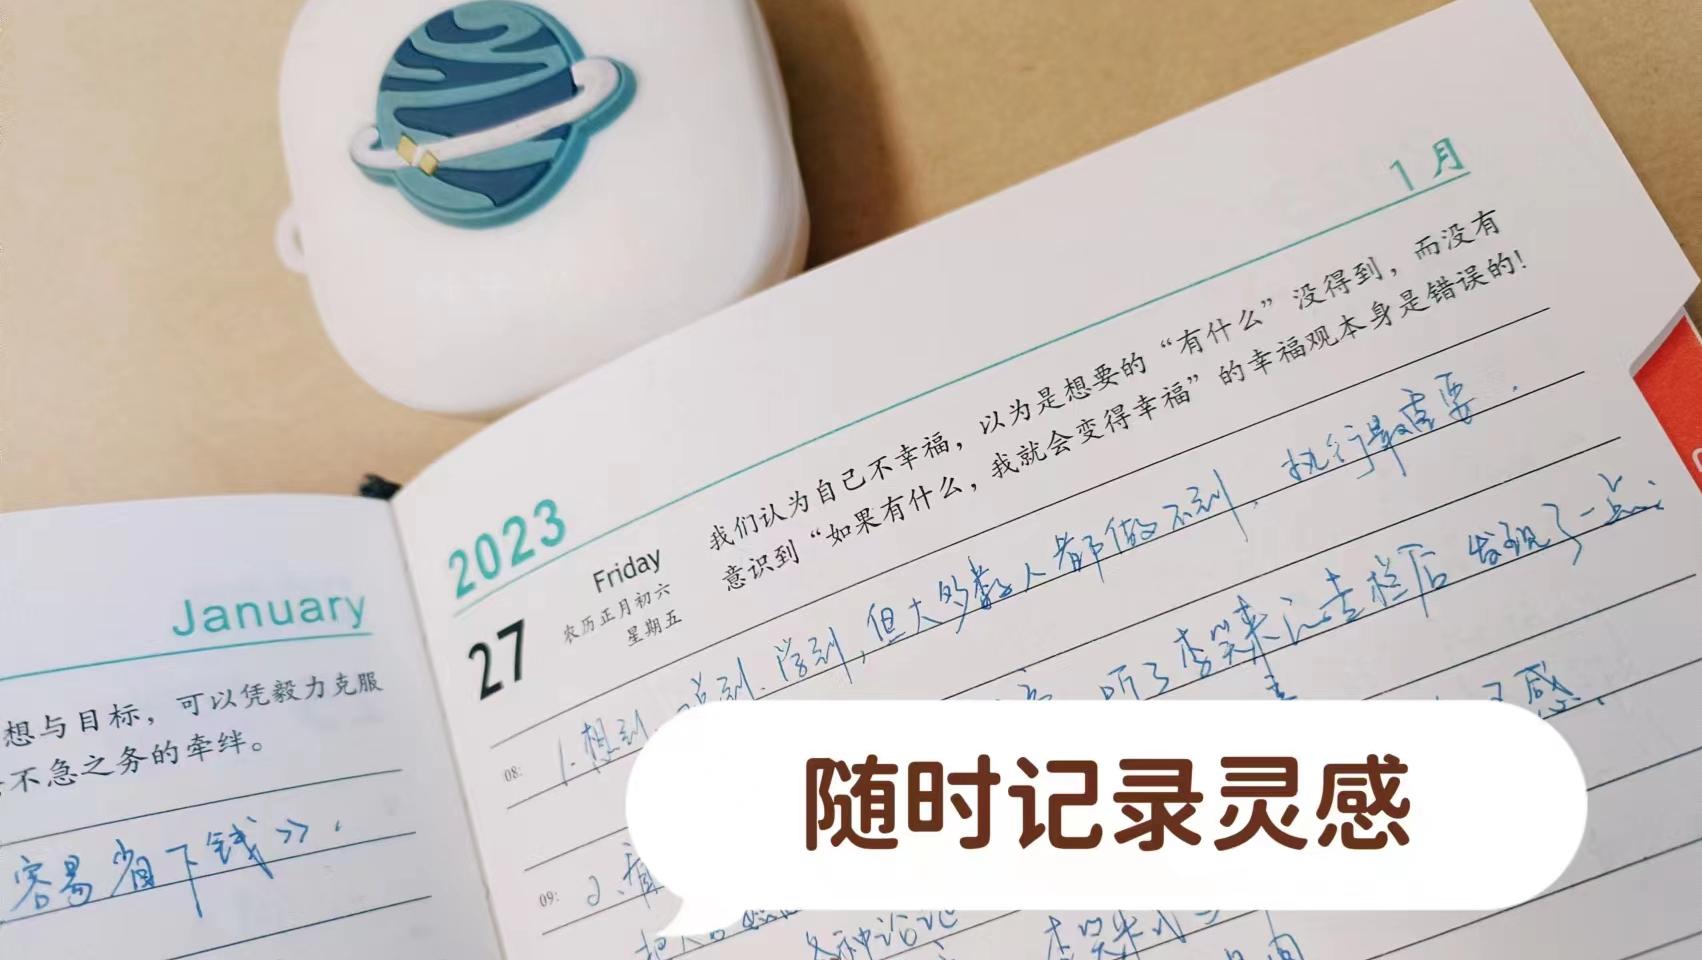 January
想与目标，可以凭毅力克服
不急之务的牵绊。
容易省下钱》.
1月
2023
27
Friday
农历正月初六
星期五
我们认为自己不幸福，以为是想要的“有什么”没得到，而没有
意识到“如果有什么，我就会变得幸福”的幸福观本身是错误的！
08:
1.想到、说到、学到，但大多数人都做不到，执行最重要.
听了李笑来记专栏后发现了一点:
灵感
09:
2.
各种论记
李笑来
随时记录灵感